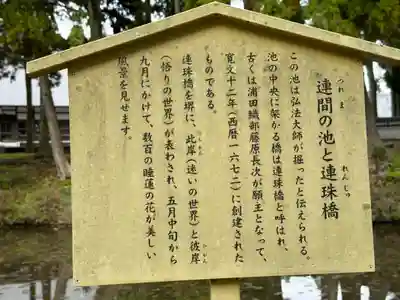 連間の池と連珠橋
つれま
れんじゅ
この池は弘法大師が掘ったと伝えられる。
池の中央に架かる橋は連珠橋と呼ばれ、
古くは浦田織部藤原長次が願主となって、
寛文十二年(西暦一六七二)に創建された
ものである。
連珠橋を堺に、此岸(迷いの世界)と彼岸
(悟りの世界)が表わされ、五月中旬から
九月にかけて、数百の睡蓮の花が美しい
風景を見せます。